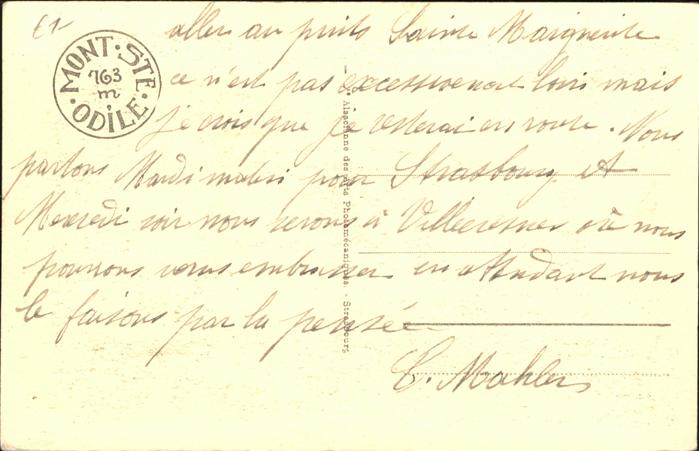 MONT · STE · ODILE ·
763
m
aller au puits Sainte Marguerite
ce n'est pas excessivement loin mais
je crois que je resterai en route. Nous
partons Mardi matin pour Strasbourg et
Mercredi soir nous serons à Villecresnes où nous
pourrons vous embrasser en attendant nous
le faisons par la pensée
Alsacienne des Arts Photomécaniques. - Strasbourg